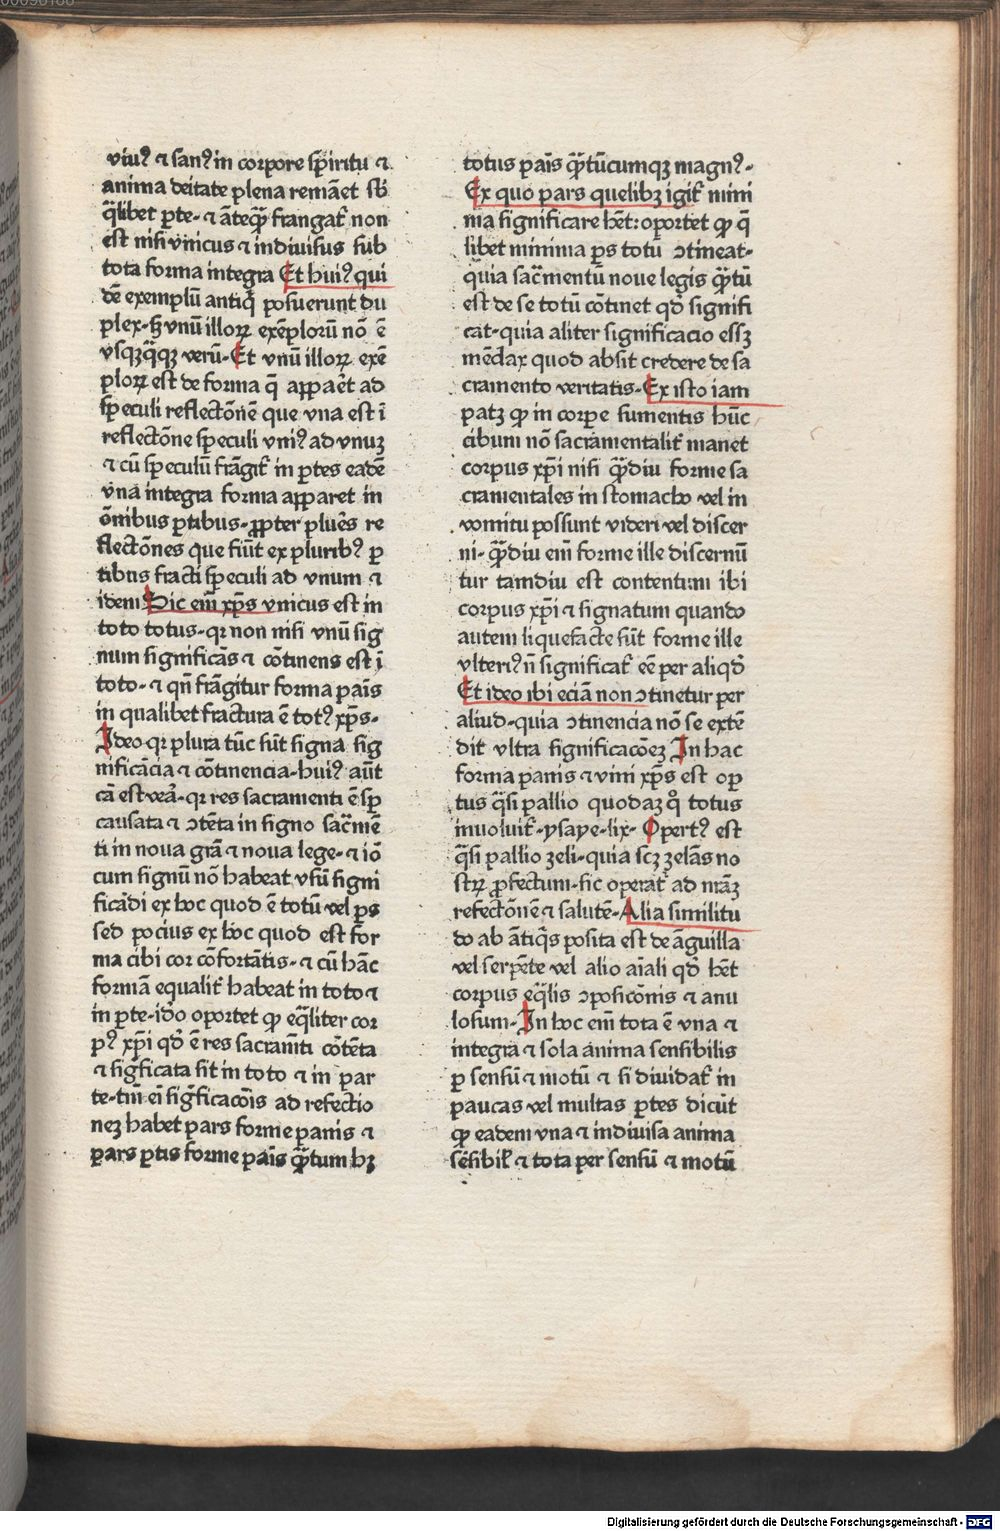 viuꝰ ⁊ sanꝰ in corpore sp̄iritu ⁊
anima deitate plena remāet sb̄
q̄libet ꝑte· ⁊ āteq̄ꝫ frangat᷑ non
est nisi vnicus ⁊ indiuisus sub
tota forma integra Et huiꝰ qui
dē exemplū antiq̄ posuerunt du
plex· ꝫ vnū illoꝝ exēploꝝ nō ē
vsqꝫq̄qꝫ verū· Et vnū illoꝝ exē
ploꝝ est de forma q̄ appaēt ad
speculi reflectōnē que vna est ī
reflectōne speculi vniꝰ ad vnuꝫ
⁊ cū speculū frāgit᷑ in ꝑtes eadē
vna integra forma apparet in
ōnibus ꝑtibus· ꝓpter plures re
flectōnes que fiūt ex pluribꝰ ꝑ
tibus fracti speculi ad vnum ⁊
idem Sic em̄ xp̄s vnicus est in
toto totus· qꝛ non nisi vnū sig
num significās ⁊ cōtinens est ī
toto· ⁊ qn̄ frāgitur forma pāis
in qualibet fractura ē totꝰ xp̄s·
Ideo qꝛ plura tūc sūt signa sig
nificācia ⁊ cōtinencia· huiꝰ aūt
cā est vea᷑· qꝛ res sacramenti ē sp̄
causata ⁊ ɔtēta in signo sac̄mē
ti in noua grā ⁊ noua lege· ⁊ iō
cum signū nō habeat vsū signi
ficādi ex hoc quod ē totū vel ꝑs
sed pocius ex hoc quod est for
ma cibi cor cōfortātis· ⁊ cū hāc
formā equalit᷑ habeat in toto ⁊
in ꝑte· ido oportet ꝙ eq̄liter cor
pꝰ xp̄i qd̄ ē res sacramti cōtēta
⁊ sigficata sit in toto ⁊ in par
te· tm̄ em̄ sigficacōis ad refectio
neꝫ habet pars forme panis ⁊
pars ꝑtis forme pāis q̄ꝫtum hꝫ
totus pāis q̄ꝫtūcumqꝫ magnꝰ·
Ex quo pars quelibꝫ igit᷑ mini
ma significare hēt: oportet ꝙ q̄
libet minima ꝑs totū ɔtineat·
quia sac̄mentū noue legis q̄ꝫtū
est de se totū cōtinet qd̄ signifi
cat· quia aliter significacio esset
mēdax quod absit credere de sa
cramento veritatis· Ex isto iam
patꝫ ꝙ in corpe sumentis hūc
cibum nō sacramentalit᷑ manet
corpus xp̄i nisi q̄ꝫdiu forme sa
cramentales in stomacho vel in
vomitu possunt videri vel discer
ni· q̄ꝫdiu em̄ forme ille discernū
tur tamdiu est contentum ibi
corpus xp̄i ⁊ signatum quando
autem liquefacte sūt forme ille
vlteriꝰ n̄ significat᷑ eē per aliqd̄
Et ideo ibi eciā non ɔtinetur per
aliud· quia ɔtinencia nō se extē
dit vltra significacōeꝫ In hac
forma panis ⁊ vini xp̄s est op̄
tus q̄si pallio quodaꝫ q̊ totus
inuoluit᷑· ysaye· lix· Opertꝰ est
q̄si pallio zeli· quia scꝫ zelās no
stꝝ ꝓfectum· sic operat᷑ ad nr̄aꝫ
refectōnē ⁊ salutē· Alia similitu
do ab ātiq̄s posita est de āguilla
vel serpēte vel alio aīali qd̄ hēt
corpus eq̄lis ɔposicōnis ⁊ anu
losum· In hoc em̄ tota ē vna ⁊
integra ⁊ sola anima sensibilis
ꝑ sensū ⁊ motū ⁊ si diuidat᷑ in
paucas vel multas ꝑtes dicūt
ꝙ eadem vna ⁊ indiuisa anima
sēsibil᷑ ⁊ tota per sensū ⁊ motū
Digitalisierung gefördert durch die Deutsche Forschungsgemeinschaft - DFG